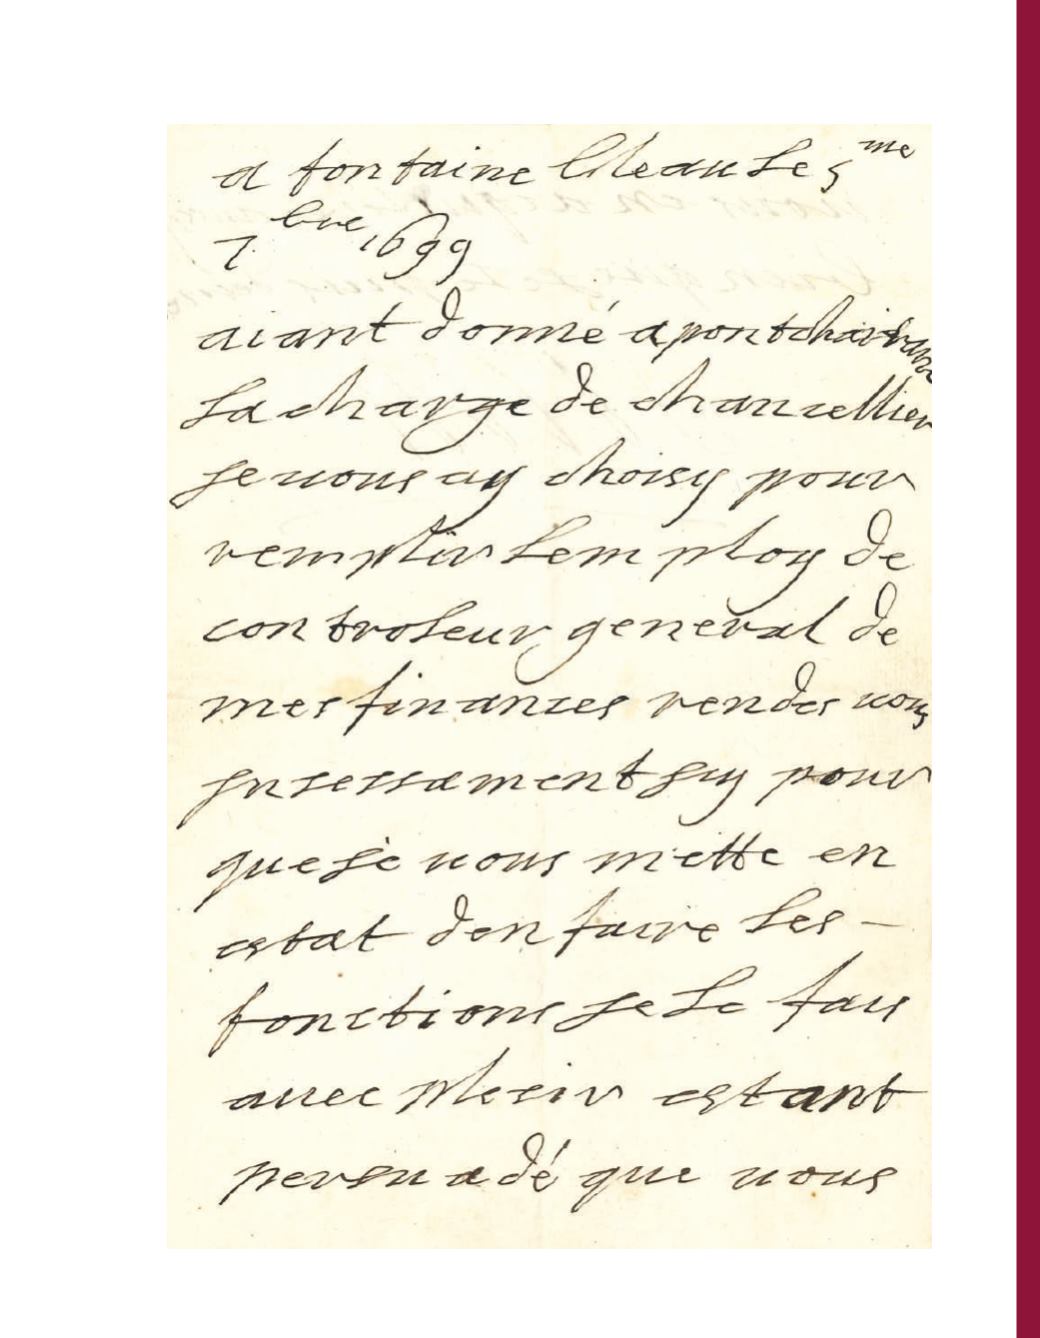 a fontaine bleau le 5 me
7 bre 1699
aiant donné a pontchartrain
la charge de chancellier
je vous ay choisy pour
remplir lemploy de
controleur general de
mes finances rendes vous
jncessament jcy pour
que je vous mette en
estat den faire les –
fonctions je le fais
avec plesir estant
persuadé que vous